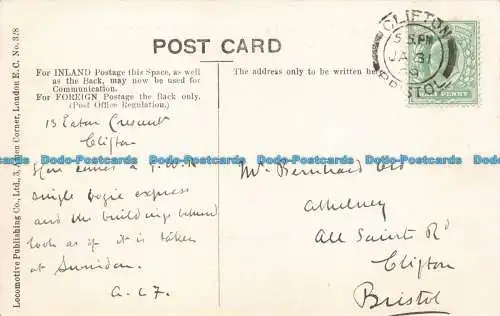 POST CARD
For INLAND Postage this Space, as well
as the Back, may now be used for
Communication.
For FOREIGN Postage the Back only.
(Post Office Regulation.)
The address only to be written here
CLIFTON
JA 3
09
BRISTOL
PENNY
Locomotive Publishing Co., Ltd., 3, Amen Corner, London E.C. No. 3/8
13 Eaton Crescent
Clifton
Here comes a G.W.R
single bogie express
and the buildings behind
look as if it is taken
at Swindon.
Mr Bernhard
Athelney
All Saints Rd
Clifton
Bristol
Dodo-Postcards Dodo-Postcards Dodo-Postcards Dodo-Postcards Dodo-Postcards